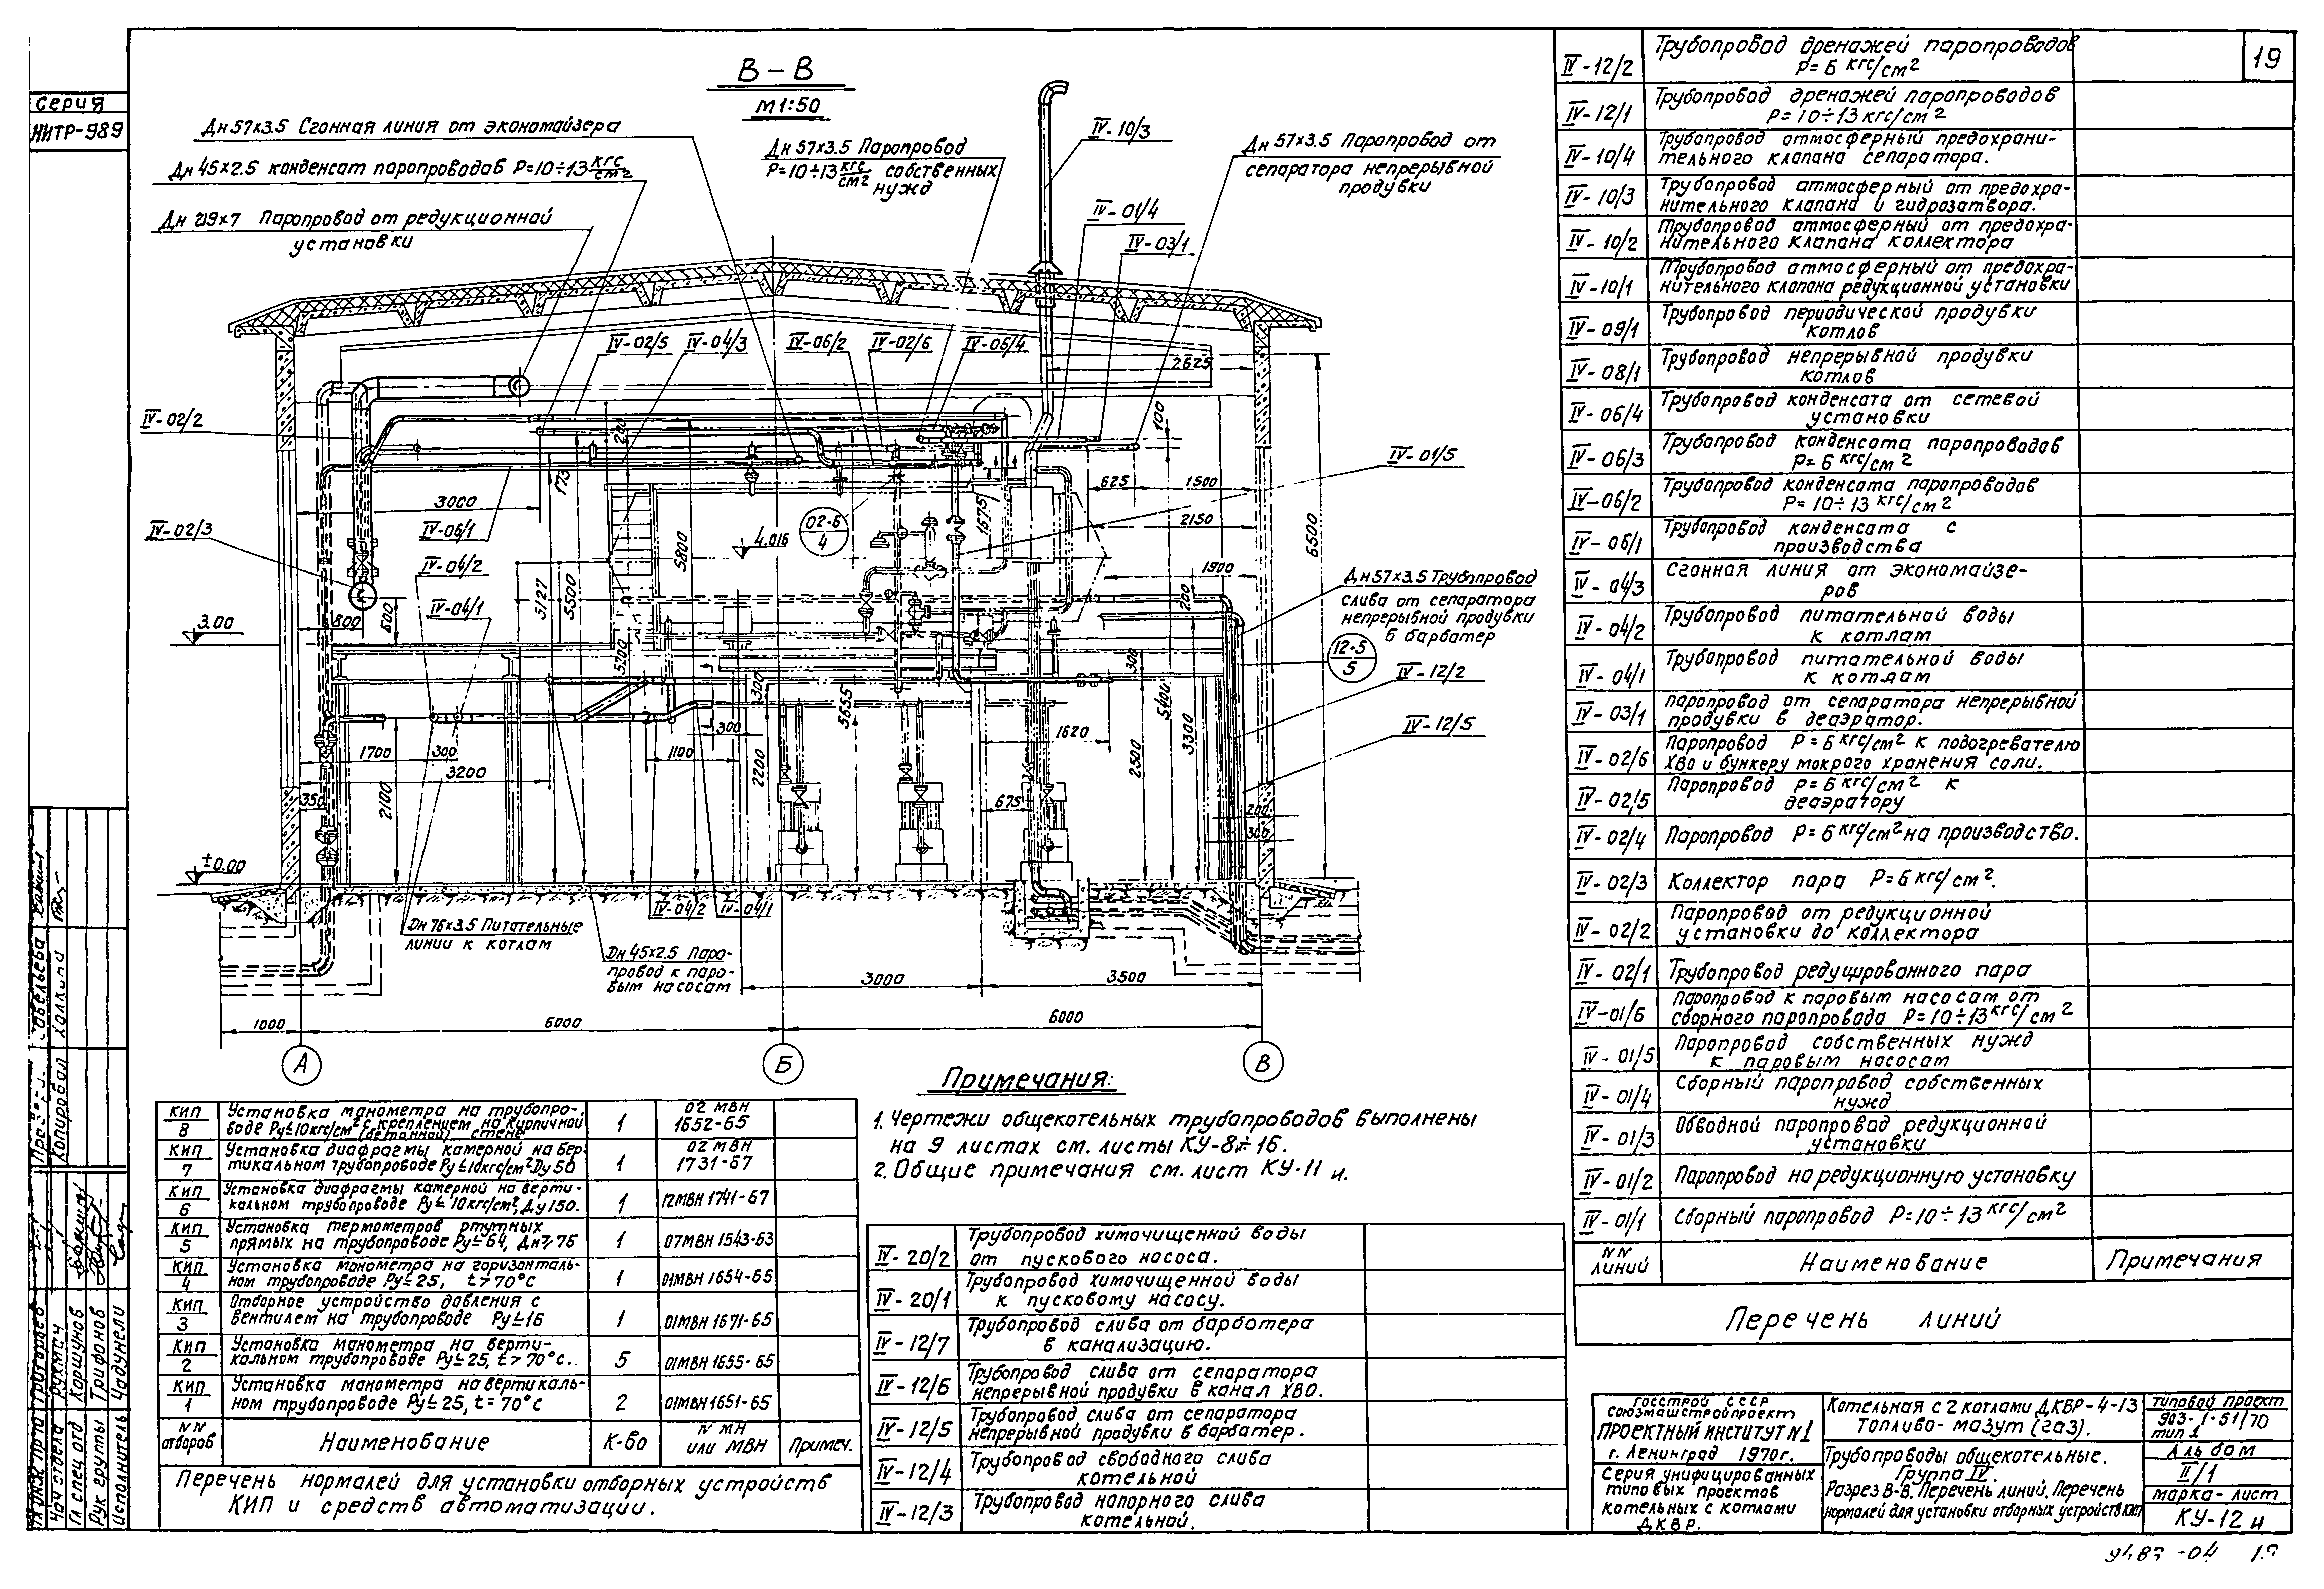 19
Серия
НИТР-989
В-В
М1:50
Дн 57×3.5 Сгонная линия от экономайзера
Дн 45×2.5 конденсат паропроводов Р=10÷13 кгс/см²
Дн 219×7 Паропровод от редукционной
установки
Дн 57×3.5 Паропровод
Р=10÷13 кгс/см² собственных
нужд
Дн 57×3.5 Паропровод от
сепаратора непрерывной
продувки
IV-10/3
IV-01/4
IV-03/1
IV-02/5
IV-04/3
IV-06/2
IV-02/6
IV-06/4
2625
IV-02/2
200
100
IV-01/5
173
3000
625
1500
IV-02/3
IV-06/1
02-6
4
1675
2150
4.016
5800
6500
IV-04/2
IV-04/1
5127
5500
1900
200
Дн 57×3.5 Трубопровод
слива от сепаратора
непрерывной продувки
Б барбатер
3.00
800
600
12-5
5
5200
300
300
IV-12/2
5655
5400
3300
300
1620
IV-12/5
1700
300
1100
2200
2500
3200
350
2100
675
200
300
±0.00
IV-04/2
IV-04/1
Дн 76×3.5 Питательные
линии к котлам
Дн 45×2.5 Паро-
провод к паро-
вым насосам
3000
3500
1000
6000
6000
А
Б
В
Примечания:
1. Чертежи общекотельных трубопроводов выполнены
на 9 листах см. листы КУ-8÷16.
2. Общие примечания см. лист КУ-11 и.
КИП 8 Установка манометра на трубопро-
воде Ру≤10кгс/см² с креплением на кирпичной
(бетонной) стене 1 02 МВН 1652-65
КИП 7 Установка диафрагмы камерной на вер-
тикальном трубопроводе Ру≤10кгс/см² Ду 50 1 02 МВН 1731-67
КИП 6 Установка диафрагмы камерной на верти-
кальном трубопроводе Ру≤10кгс/см², Ду 150. 1 12МВН 1741-67
КИП 5 Установка термометров ртутных
прямых на трубопроводе Ру≤64, Дн≥76 1 07МВН 1543-63
КИП 4 Установка манометра на горизонталь-
ном трубопроводе Ру≤25, t>70°с 1 01МВН 1654-65
КИП 3 Отборное устройство давления с
вентилем на трубопроводе Ру≤16 1 01МВН 1671-65
КИП 2 Установка манометра на верти-
кальном трубопроводе Ру≤25, t>70°с.. 5 01МВН 1655-65
КИП 1 Установка манометра на вертикаль-
ном трубопроводе Ру≤25, t=70°с 2 01МВН 1651-65
NN отборов Наименование К-во N МН или МВН Примеч.
Перечень нормалей для установки отборных устройств
КИП и средств автоматизации.
IV-20/2 Трубопровод химочищенной воды
от пускового насоса.
IV-20/1 Трубопровод химочищенной воды
к пусковому насосу.
IV-12/7 Трубопровод слива от барбатера
в канализацию.
IV-12/6 Трубопровод слива от сепаратора
непрерывной продувки в канал ХВО.
IV-12/5 Трубопровод слива от сепаратора
непрерывной продувки в барбатер.
IV-12/4 Трубопровод свободного слива
котельной
IV-12/3 Трубопровод напорного слива
котельной.
IV-12/2 Трубопровод дренажей паропроводов
Р=6 кгс/см²
IV-12/1 Трубопровод дренажей паропроводов
Р=10÷13кгс/см²
IV-10/4 Трубопровод атмосферный предохрани-
тельного клапана сепаратора.
IV-10/3 Трубопровод атмосферный от предохра-
нительного клапана и гидрозатвора.
IV-10/2 Трубопровод атмосферный от предохра-
нительного клапана коллектора
IV-10/1 Трубопровод атмосферный от предохра-
нительного клапана редукционной установки
IV-09/1 Трубопровод периодической продувки
котлов
IV-08/1 Трубопровод непрерывной продувки
котлов
IV-06/4 Трубопровод конденсата от сетевой
установки
IV-06/3 Трубопровод конденсата паропроводов
Р=6 кгс/см²
IV-06/2 Трубопровод конденсата паропроводов
Р=10÷13 кгс/см²
IV-06/1 Трубопровод конденсата с
производства
IV-04/3 Сгонная линия от экономайзе-
ров
IV-04/2 Трубопровод питательной воды
к котлам
IV-04/1 Трубопровод питательной воды
к котлам
IV-03/1 Паропровод от сепаратора непрерывной
продувки в деаэратор.
IV-02/6 Паропровод Р=6кгс/см² к подогревателю
ХВО и бункеру мокрого хранения соли.
IV-02/5 Паропровод Р=6кгс/см² к
деаэратору
IV-02/4 Паропровод Р=6кгс/см² на производство.
IV-02/3 Коллектор пара Р=6кгс/см².
IV-02/2 Паропровод от редукционной
установки до коллектора
IV-02/1 Трубопровод редуцированного пара
IV-01/6 Паропровод к паровым насосам от
сборного паропровода Р=10÷13кгс/см²
IV-01/5 Паропровод собственных нужд
к паровым насосам
IV-01/4 Сборный паропровод собственных
нужд
IV-01/3 Обводной паропровод редукционной
установки
IV-01/2 Паропровод на редукционную установку
IV-01/1 Сборный паропровод Р=10÷13 кгс/см²
NN линий Наименование Примечания
Перечень линий
Госстрой СССР
Союзмашстройпроект
ПРОЕКТНЫЙ ИНСТИТУТ N1
г. Ленинград 1970г.
Серия унифицированных
типовых проектов
котельных с котлами
ДКВР.
Котельная с 2 котлами ДКВР-4-13
Топливо-мазут (газ).
Трубопроводы общекотельные.
Группа IV.
Разрез В-В. Перечень линий. Перечень
нормалей для установки отборных устройств КИП
типовой проект
903-1-51/70
тип 1
Альбом
II/1
марка-лист
КУ-12 и
Нач отдела Рухман
Гл спец отд Коршунов
Рук группы Трифонов
Исполнитель Чадунели
Копировал Халкина
Савельева